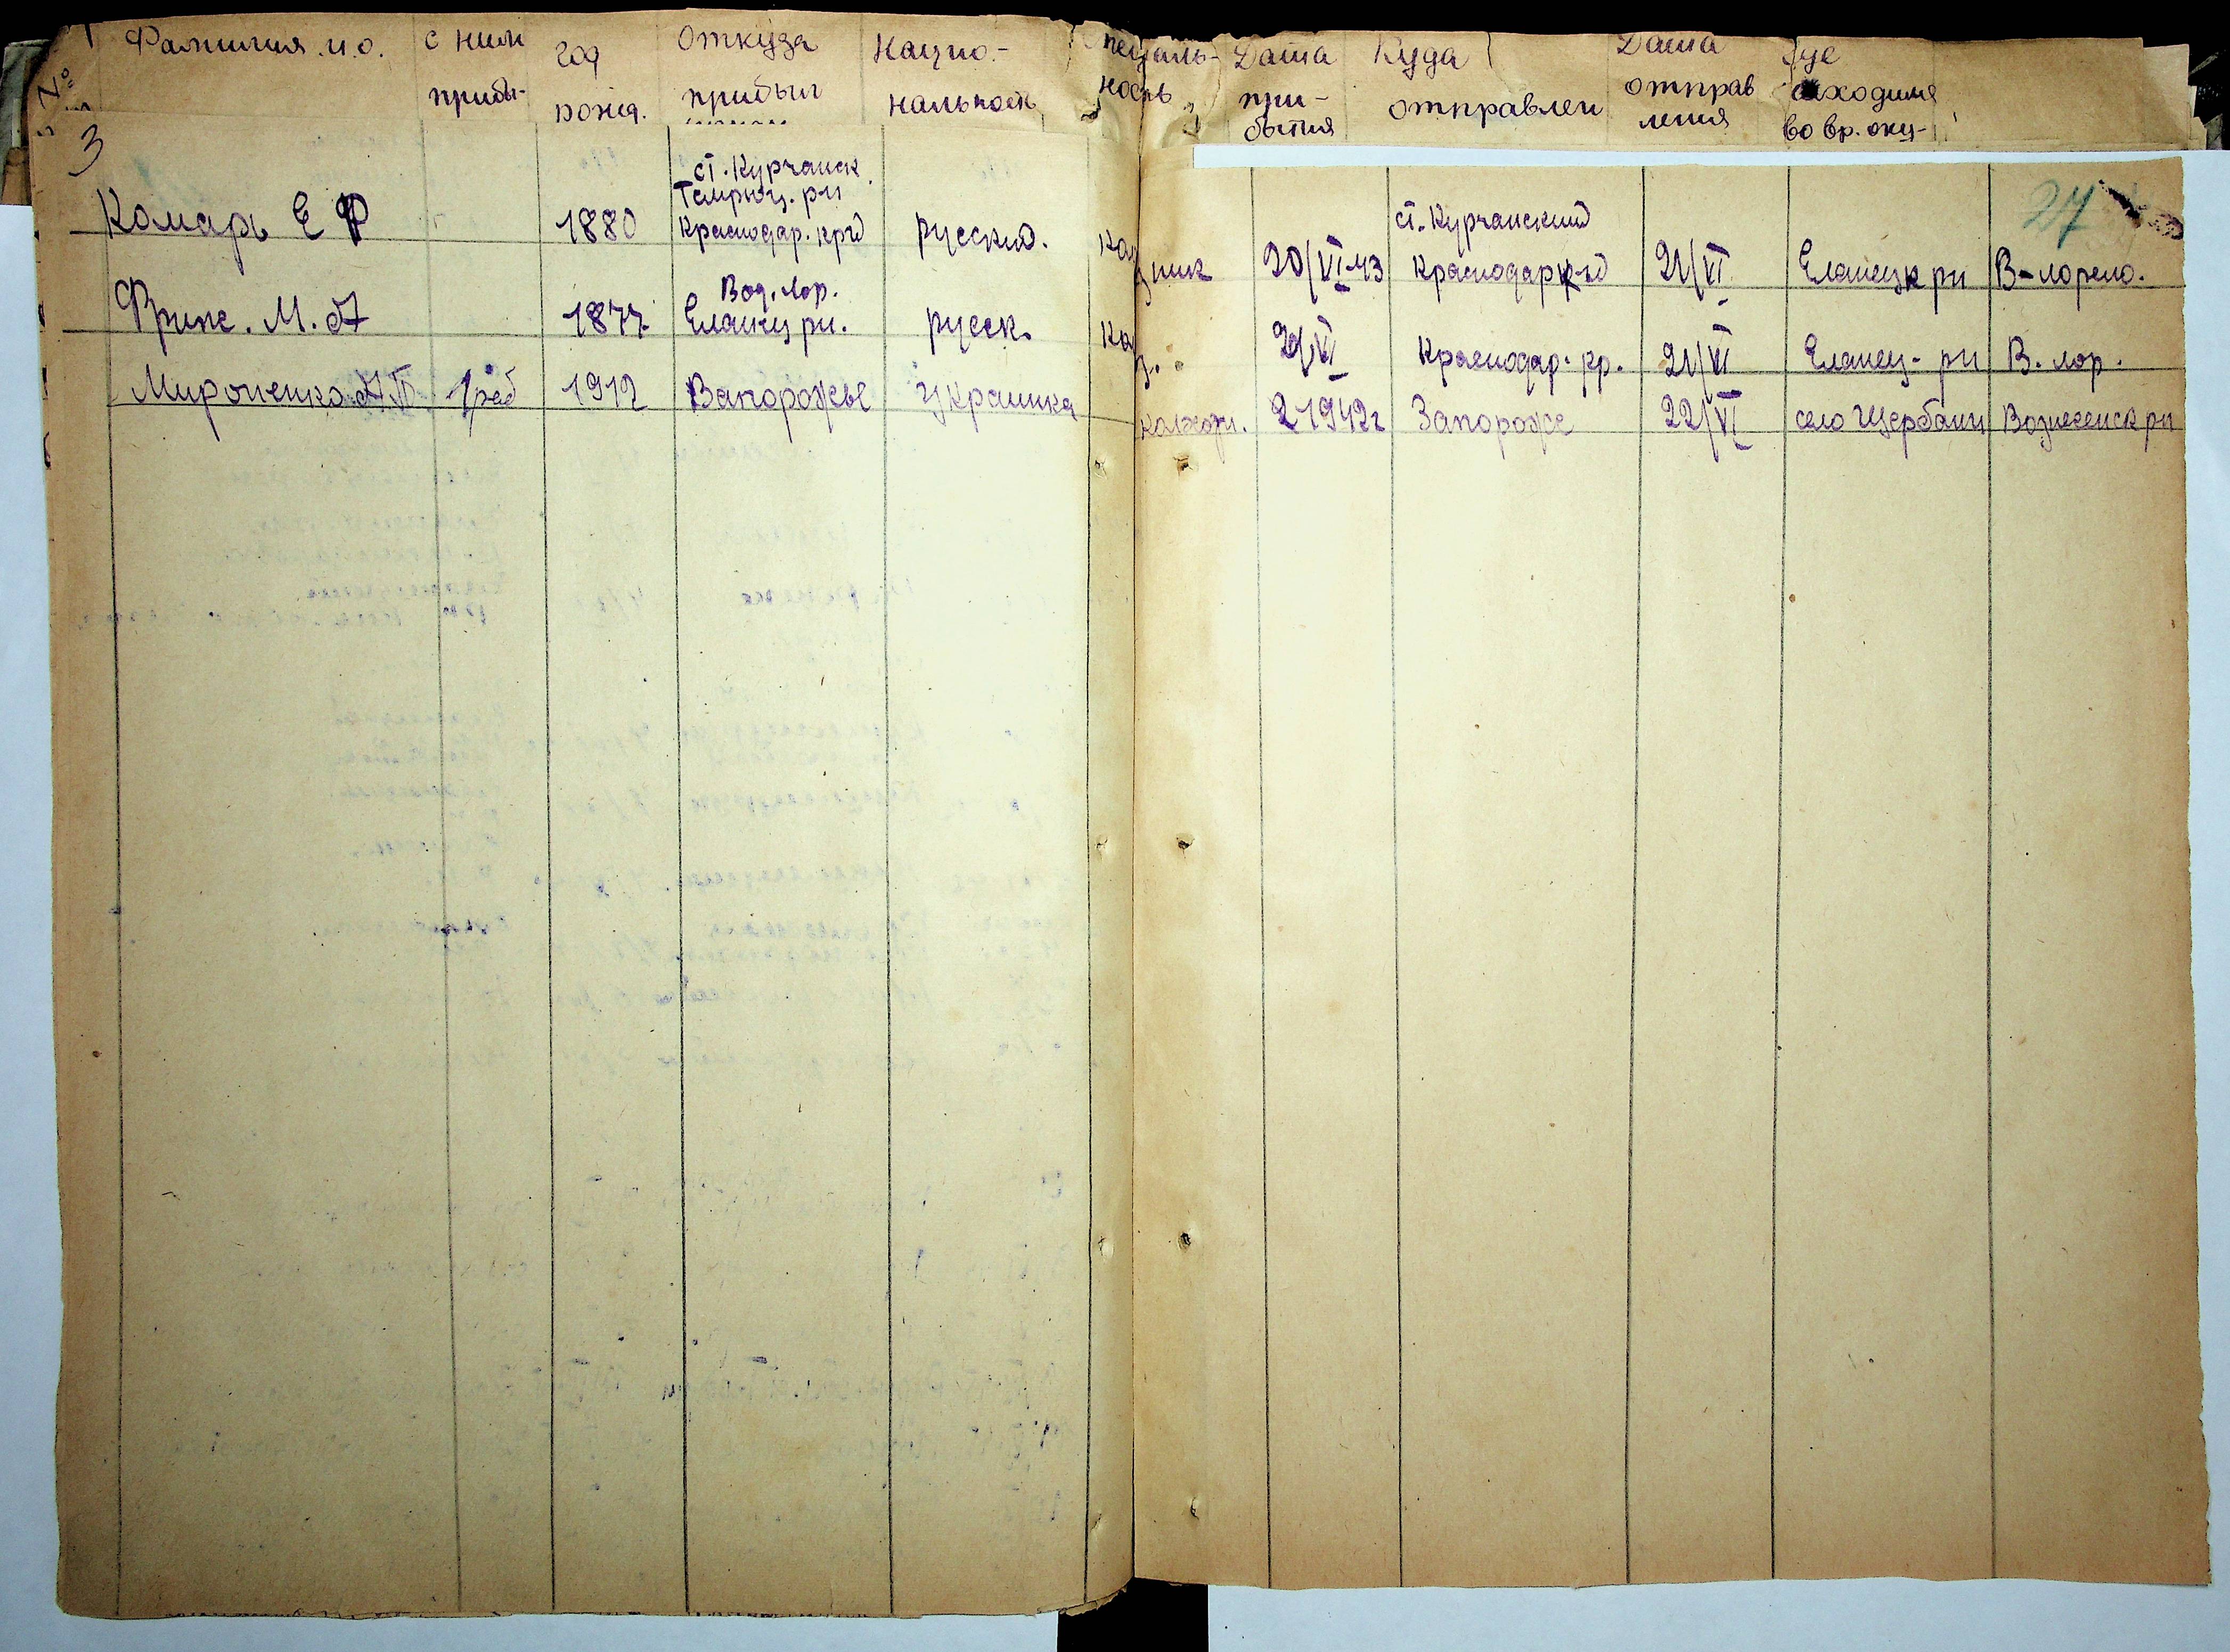 № Фамилия.и.о. с ним прибы- год рожд. Откуда прибыл Нацио- нальность Специаль- ность Дата при- бытия Куда отправлен Дата отправ ления Где находился во вр. окку-
3
27
Комарь Е Ф 1880 ст. Курчанск Темрюц. рн Краснодар. край русский. 20/VI-43 ст. Курчанский Краснодар край 21/VI Еланецк рн
Принс. М. А 1877 Еланец рн. русск. 21/VI Краснодар. кр. 21/VI Еланец- рн В. лор.
Мироненко А П 1 реб 1912 Запорожье украинка колхозн. 2 1942г Запороже 22/VI село Щербани Вознесенск рн